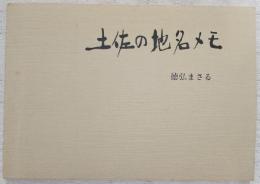 土佐の地名メモ
徳弘まさる